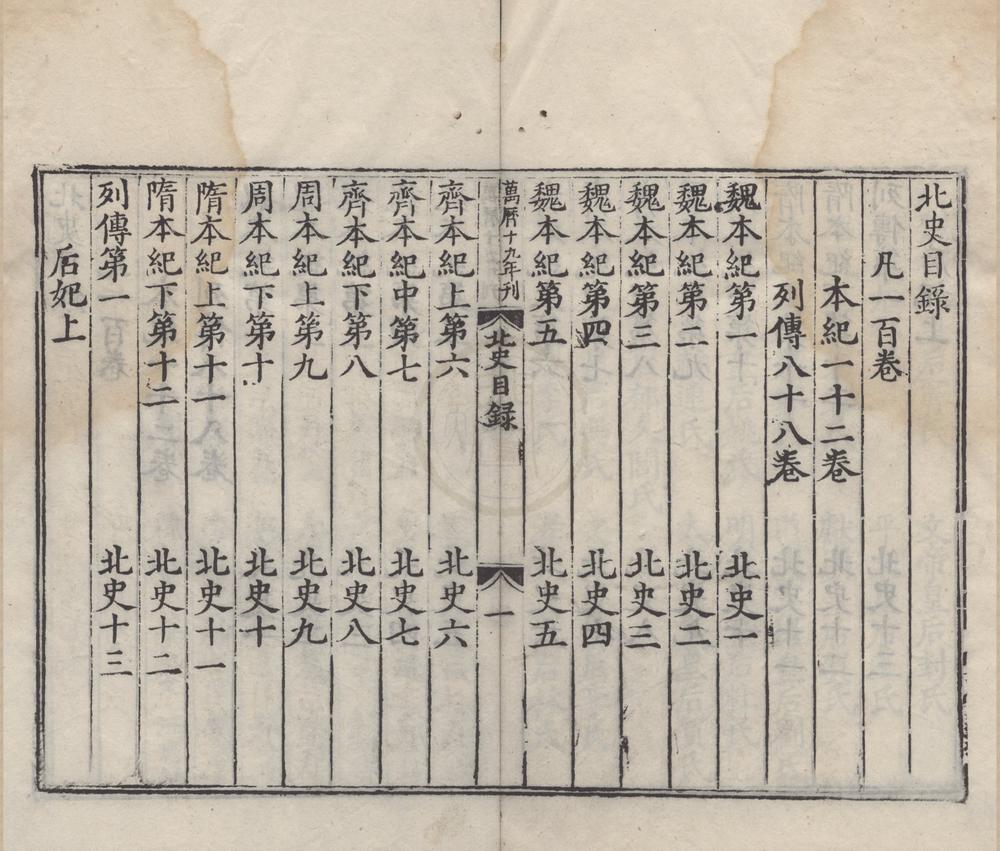 北史目錄
凡一百卷
本紀一十二卷
列傳八十八卷
魏本紀第一 北史一
魏本紀第二 北史二
魏本紀第三 北史三
魏本紀第四 北史四
魏本紀第五 北史五
萬曆十九年刊 北史目錄 一
齊本紀上第六 北史六
齊本紀中第七 北史七
齊本紀下第八 北史八
周本紀上第九 北史九
周本紀下第十 北史十
隋本紀上第十一 北史十一
隋本紀下第十二 北史十二
列傳第一 北史十三
后妃上